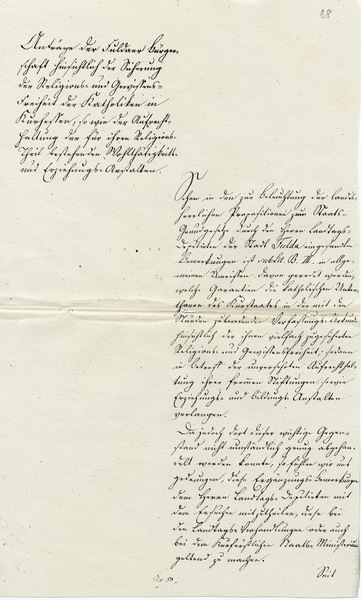 88
Anträge der Fuldaer Bürger-
schaft hinsichtlich der Sicherung
der Religions- und Gewissens-
Freiheit der Katholiken in
Kurhessen, so wie der Aufrecht-
haltung der für ihren Religions-
Theil bestehenden Wohlthätigkeits-
und Erziehungs-Anstalten.
Schon in den zur Beleuchtung der landes-
herrlichen Propositionen zum Staats-
Grundgesetz durch den Herrn Landtags-
Deputirten der Stadt Fulda eingesandten
Bemerkungen ist sub lit. B. III. in allge-
meinen Umrissen davon geredet worden,
welche Garantien die katholischen Unter-
thanen des Kurstaates in der mit den
Ständen Verfassungs-Urkunde
hinsichtlich der ihnen vielfach zugesicherten
Religions- und Gewissensfreiheit, sodann
in betreff der ungestörten Aufrechthal-
tung ihrer frommen Stiftungen sowie
Erziehungs- und Bildungs-Anstalten
verlangen.
Da jedoch dort dieser wichtige Gegen-
stand nicht umständlich genug abgehan-
delt werden konnte, so fühlen wir uns
gedrungen, diese Ergänzungs-Bemerkungen
dem Herrn Landtags-Deputirten mit
dem Ersuchen mitzutheilen, diese bei
den Landtags-Verhandlungen oder auch
bei dem Kurfürstlichen Staats-Ministerium
geltend zu machen.
Seit